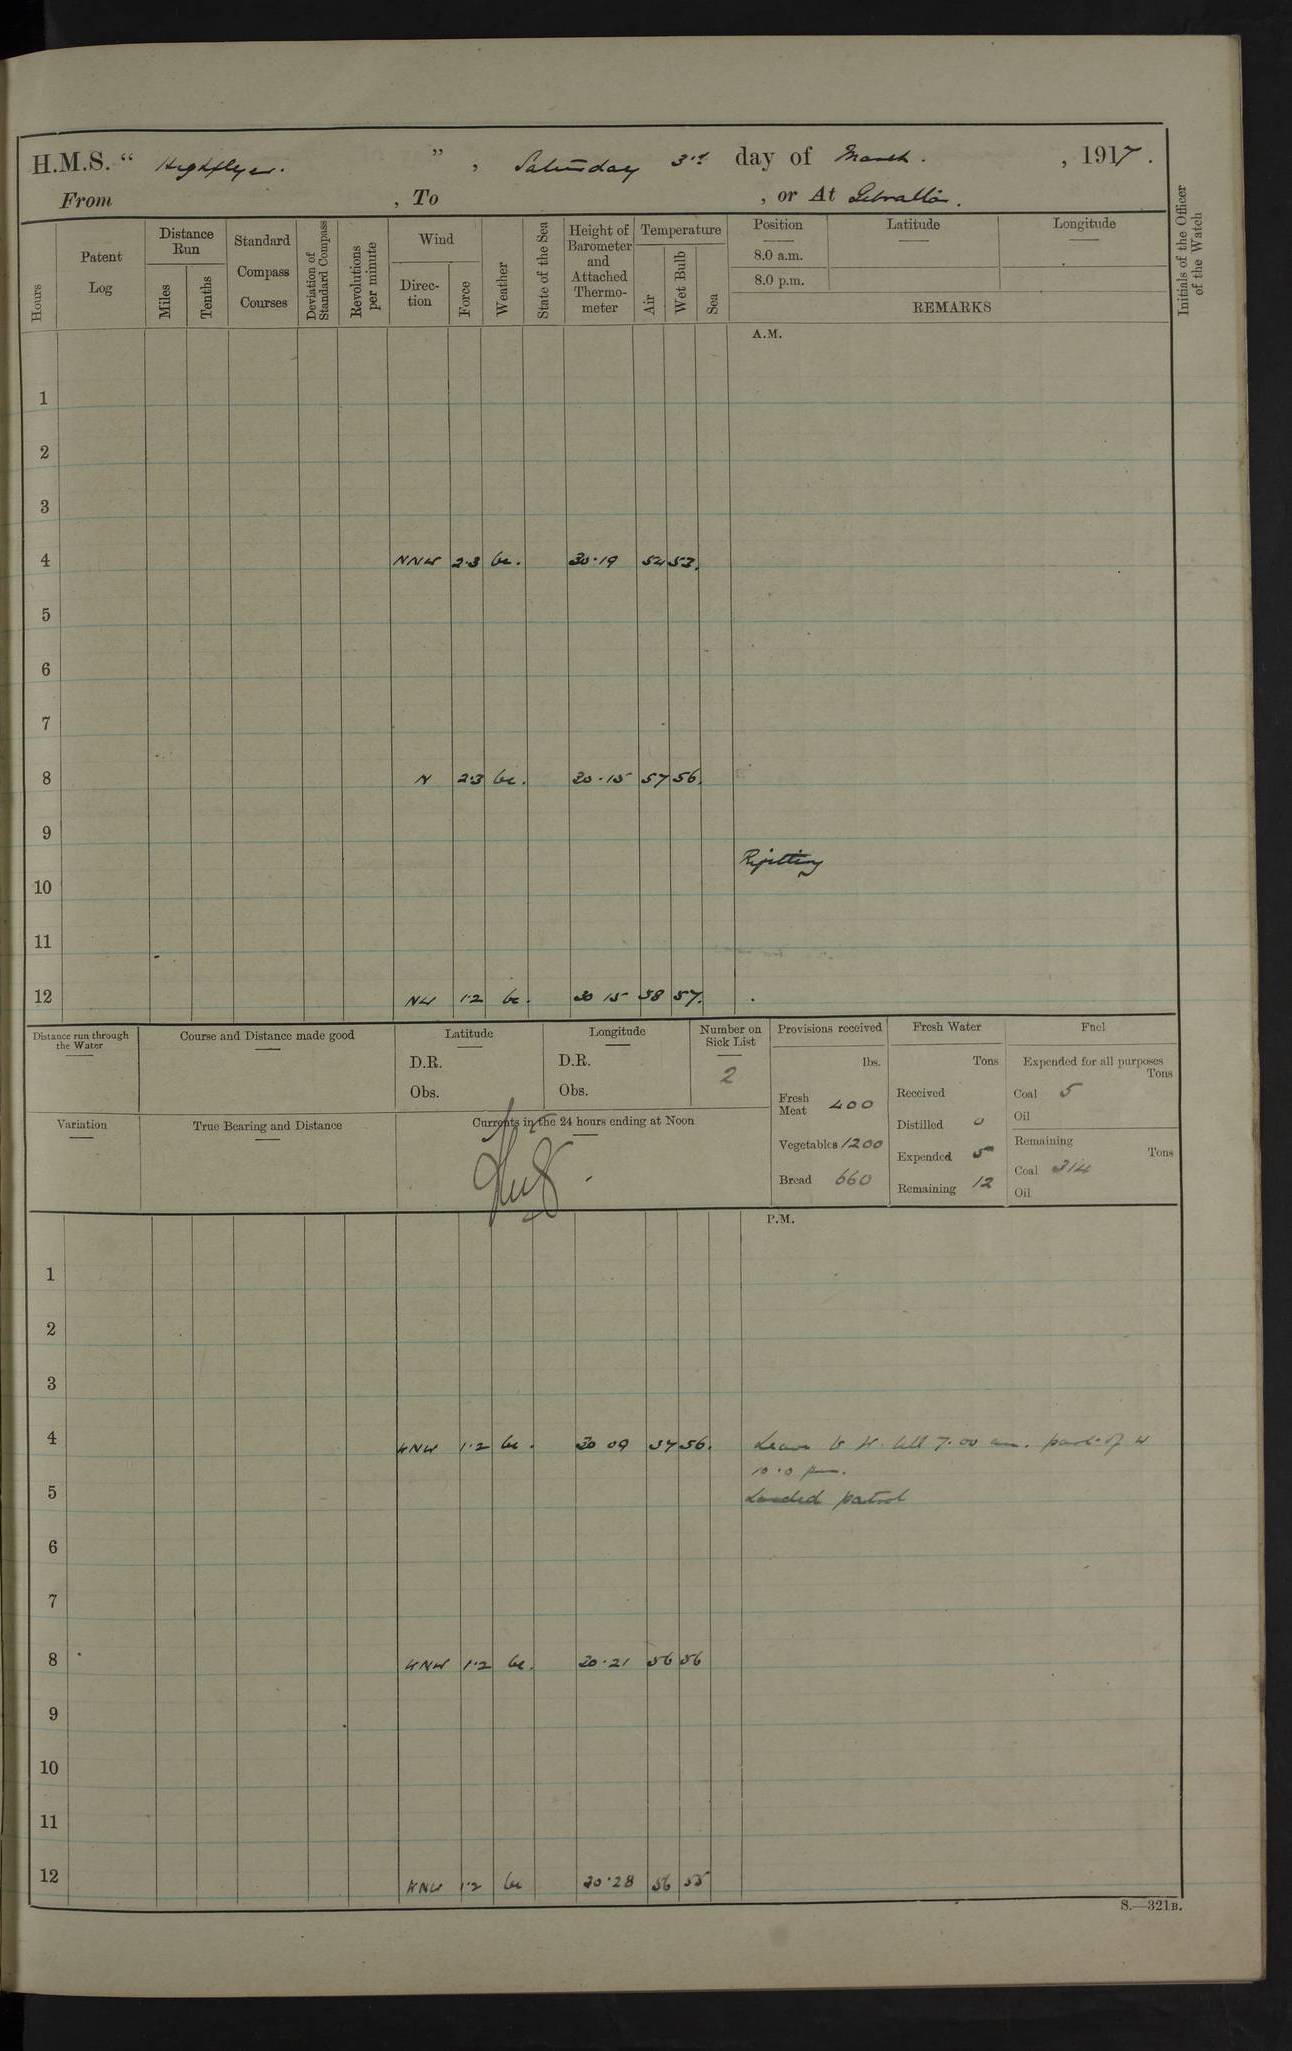 H.M.S. “ Highflyer. ” , Saturday 3rd day of March. , 1917.
From , To , or At Gibraltar.
Hours Patent Log Distance Run Miles Tenths Standard Compass Courses Deviation of Standard Compass Revolutions per minute Wind Direction Force Weather State of the Sea Height of Barometer and Attached Thermometer Temperature Air Wet Bulb Sea
Position Latitude Longitude
8.0 a.m.
8.0 p.m.
REMARKS
Initials of the Officer of the Watch
A.M.
1
2
3
4 NNW 2.3 bc. 30.19 54 53.
5
6
7
8 N 2.3 bc. 30.15 57 56.
9
Refitting
10
11
12 NW 1.2 bc. 30 15 58 57.
Distance run through the Water
Course and Distance made good
Latitude
D.R.
Obs.
Longitude
D.R.
Obs.
Number on Sick List
2
Provisions received
lbs.
Fresh Meat 400
Vegetables 1200
Bread 660
Fresh Water
Tons
Received
Distilled 0
Expended 5
Remaining 12
Fuel
Expended for all purposes
Tons
Coal 5
Oil
Remaining
Tons
Coal 314
Oil
Variation
True Bearing and Distance
Currents in the 24 hours ending at Noon
P.M.
1
2
3
4 WNW 1.2 bc. 30 09 57 56. Leave to till 7.00 am. part of W
10.0 pm.
5 Landed patrol
6
7
8 WNW 1.2 bc. 30.21 56 56
9
10
11
12 WNW 1.2 bc 30.28 56 55
S.—321B.